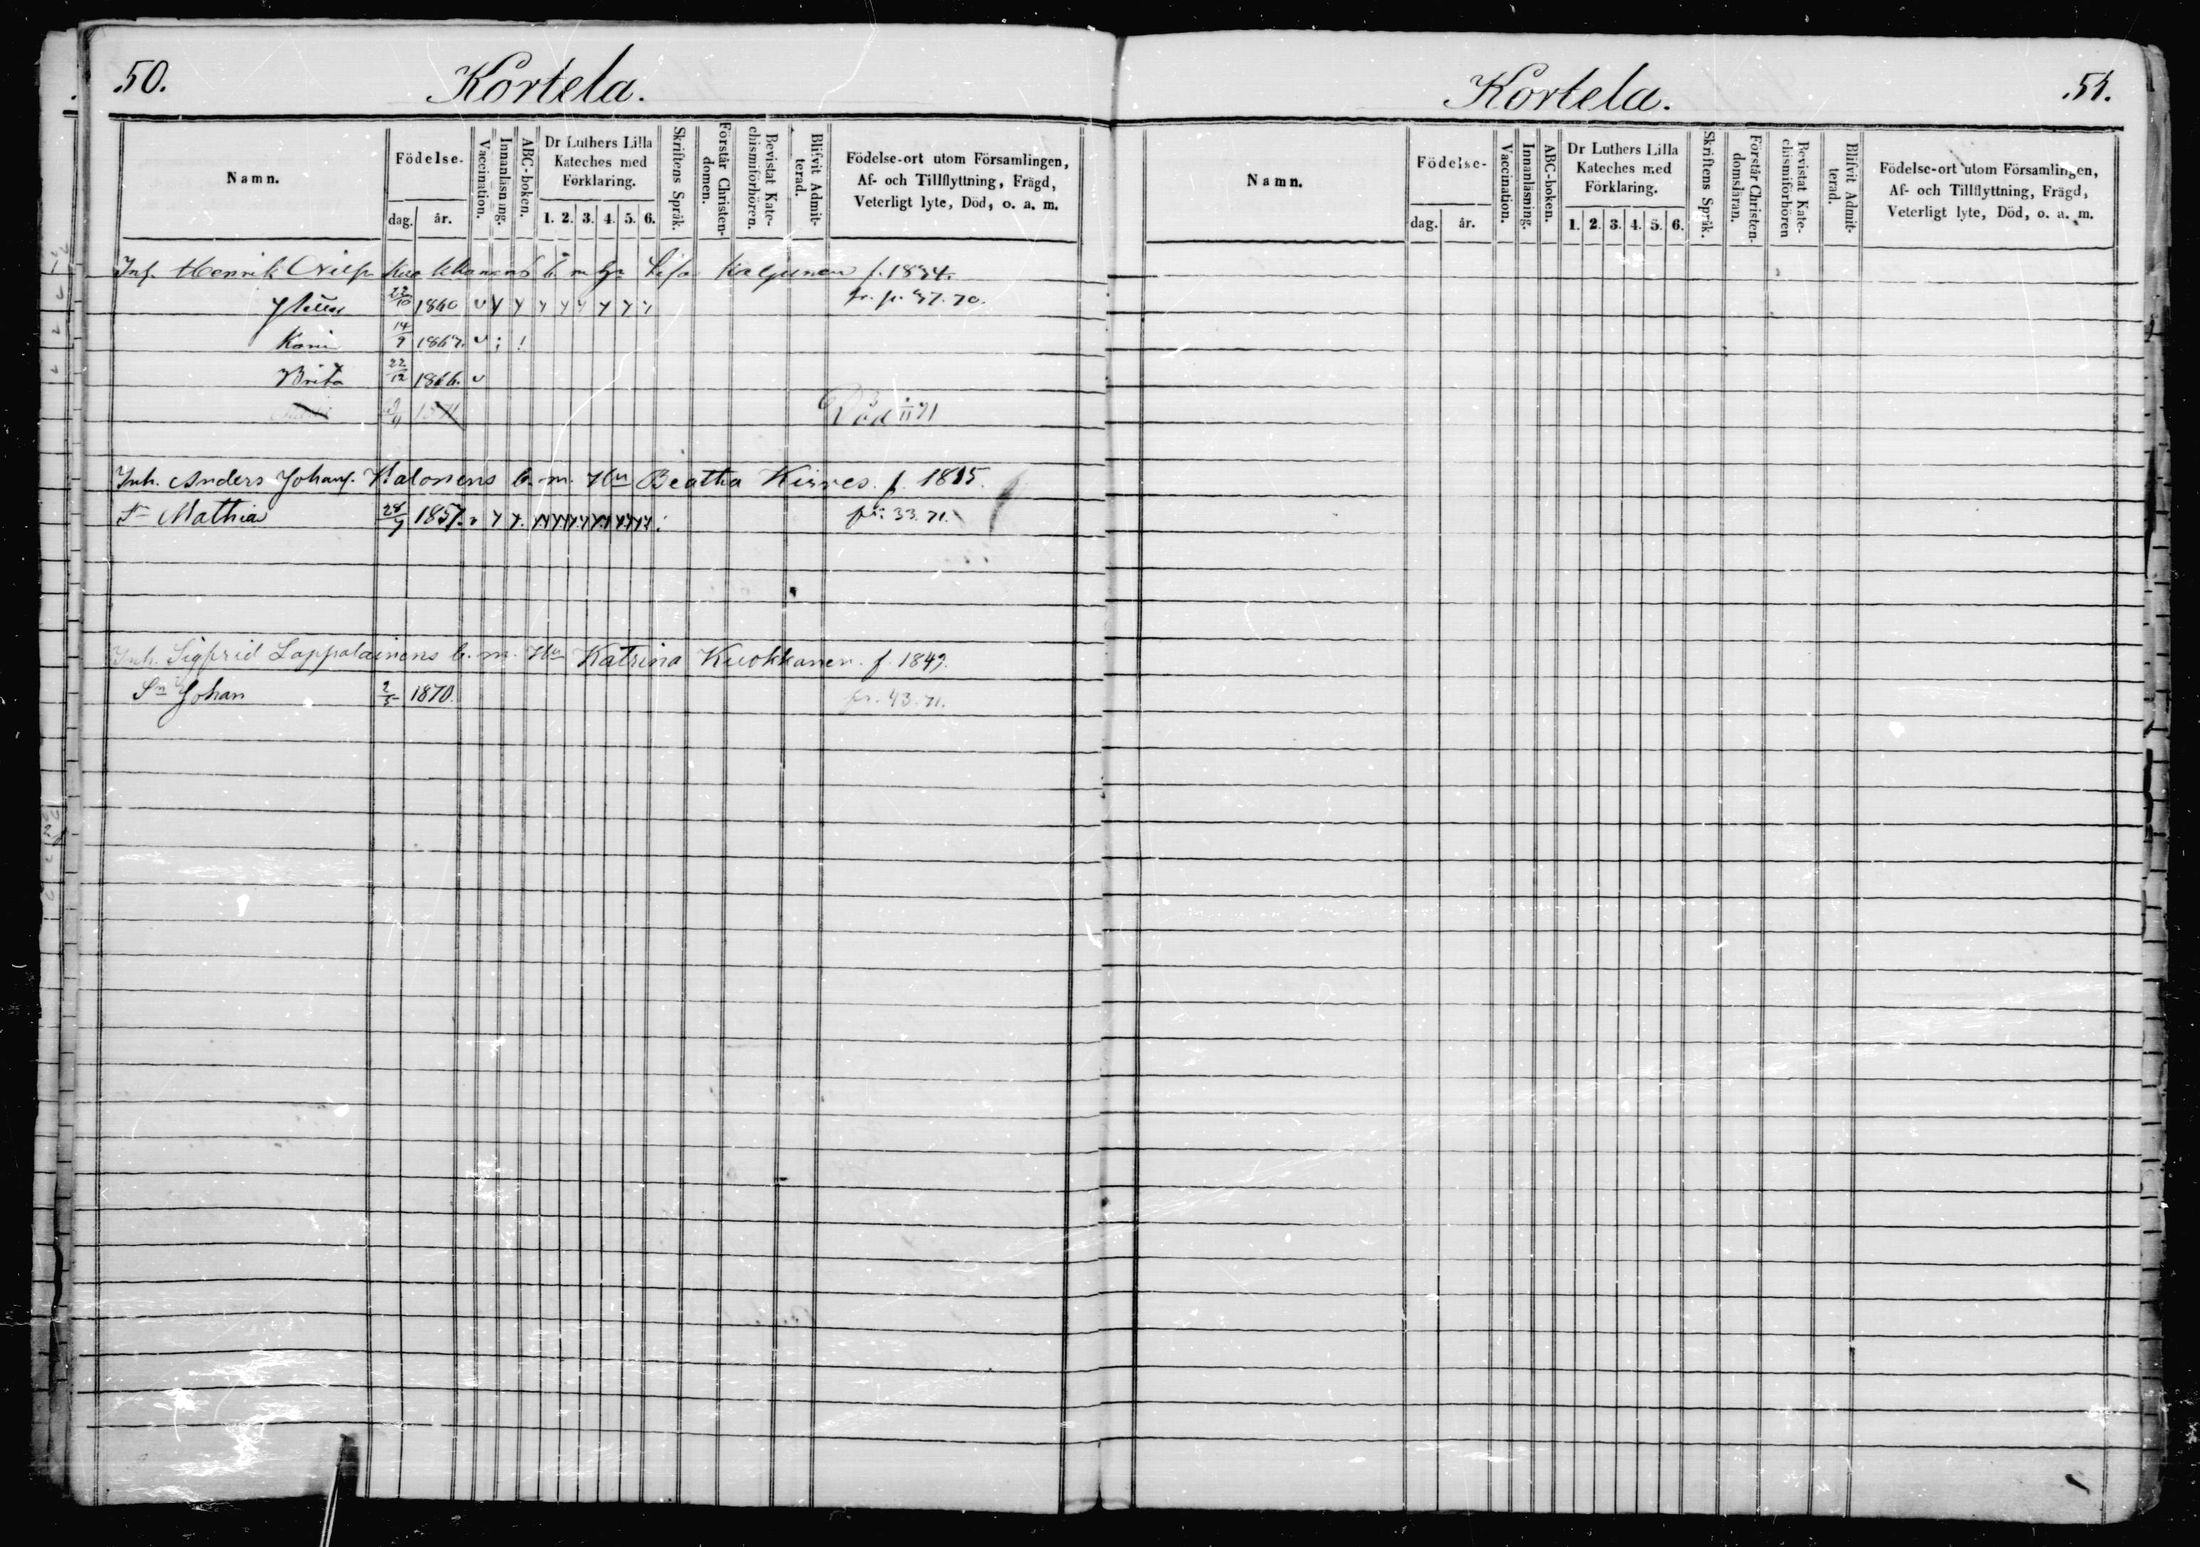 50.
Kortela.
Namn.
Födelse-
dag. år.
Vaccination.
Innanläsning.
ABC-boken.
Dr Luthers Lilla
Kateches med
Förklaring.
1. 2. 3. 4. 5. 6.
Skriftens Språk.
Förstår Christen-
domen.
Bevistat Kate-
chismiförhören.
Blifvit Admit-
terad.
Födelse-ort utom Församlingen,
Af- och Tillflyttning, Frägd,
Veterligt lyte, Död, o. a. m.
Henrik Kuokkanens b. m. Lisa f. 1834.
22/10 1860 v y y y y y y y y fr. p. 47. 70.
14/9 1867. v
Brita 22/12 1866. v
Död 71
Inh. Anders Johans. Halonens b. m. Hu Beatha Kirves f. 1815.
Sn Mathia 28/9 1857. 33. 71.
Inh. Sigfrid Lappalainens b. m. Hu Katrina Kuokkanen. f. 1849.
Sn Johan 2/5 1870. fr. 43. 71.
Kortela.
51.
Namn.
Födelse-
dag. år.
Vaccination.
Innanläsning.
ABC-boken.
Dr Luthers Lilla
Kateches med
Förklaring.
1. 2. 3. 4. 5. 6.
Skriftens Språk.
Förstår Christen-
domsläran.
Bevistat Kate-
chismiförhören
Blifvit Admit-
terad.
Födelse-ort utom Församlingen,
Af- och Tillflyttning, Frägd,
Veterligt lyte, Död, o. a. m.